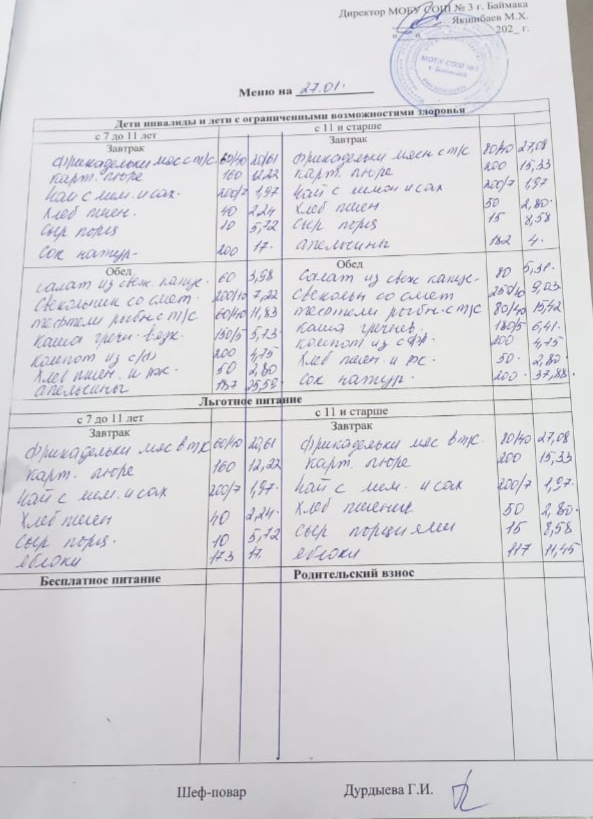 Директор МОБУ СОШ № 3 г. Баймака
Якшибаев М.Х.
202_ г.
МОБУ СОШ №3
Меню на 27.01.
Дети инвалиды и дети с ограниченными возможностями здоровья
с 7 до 11 лет с 11 и старше
Завтрак Завтрак
Фрикадельки мяс с т/с 60/40 20,61 Фрикадельки мясн с т/с 80/40 27,08
Карт. пюре 160 12,22 Карт. пюре 200 15,33
Чай с лим. и сах. 200/7 1,97 Чай с лимон и сах 200/7 1,97
Хлеб пшен. 40 2,24 Хлеб пшен 50 2,80.
Сыр порц 10 5,72 Сыр порц 15 8,58
Сок натур. 200 17. апельсины 182 4.
Обед Обед
Салат из свеж. капус. 60 3,98 Салат из свеж капус. 80
Свекольник со смет. 200/10 7,22 Свекольн со смет 250/10 9,03
тефтели рыбн с т/с 60/40 11,83 тефтели рыбн. с т/с 80/40 15,42
Каша гречн. вязк. 150/5 5,73. Каша гречнев. 180/5 6,41.
Компот из с/ф 200 4,75 компот из с/ф. 200 4,75
Хлеб пшен. и рж. 50 2,80 Хлеб пшен и рж. 50. 2,80.
апельсины 187 25,59. Сок натур. 200. 37,88.
Льготное питание
с 7 до 11 лет с 11 и старше
Завтрак Завтрак
Фрикадельки мяс в т/с 60/40 20,61 Фрикадельки мяс в т/с. 80/40 27,08
Карт. пюре 160 12,22 Карт. пюре 200 15,33
Чай с лим. и сах 200/7 1,97. Чай с лим. и сах 200/7 1,97.
Хлеб пшен 40 2,24. Хлеб пшенич 50 2,80.
Сыр порц. 10 5,72 Сыр порциями 15 8,58
яблоки 173 17. яблоки 117 11,45
Бесплатное питание Родительский взнос
Шеф-повар Дурдыева Г.И.